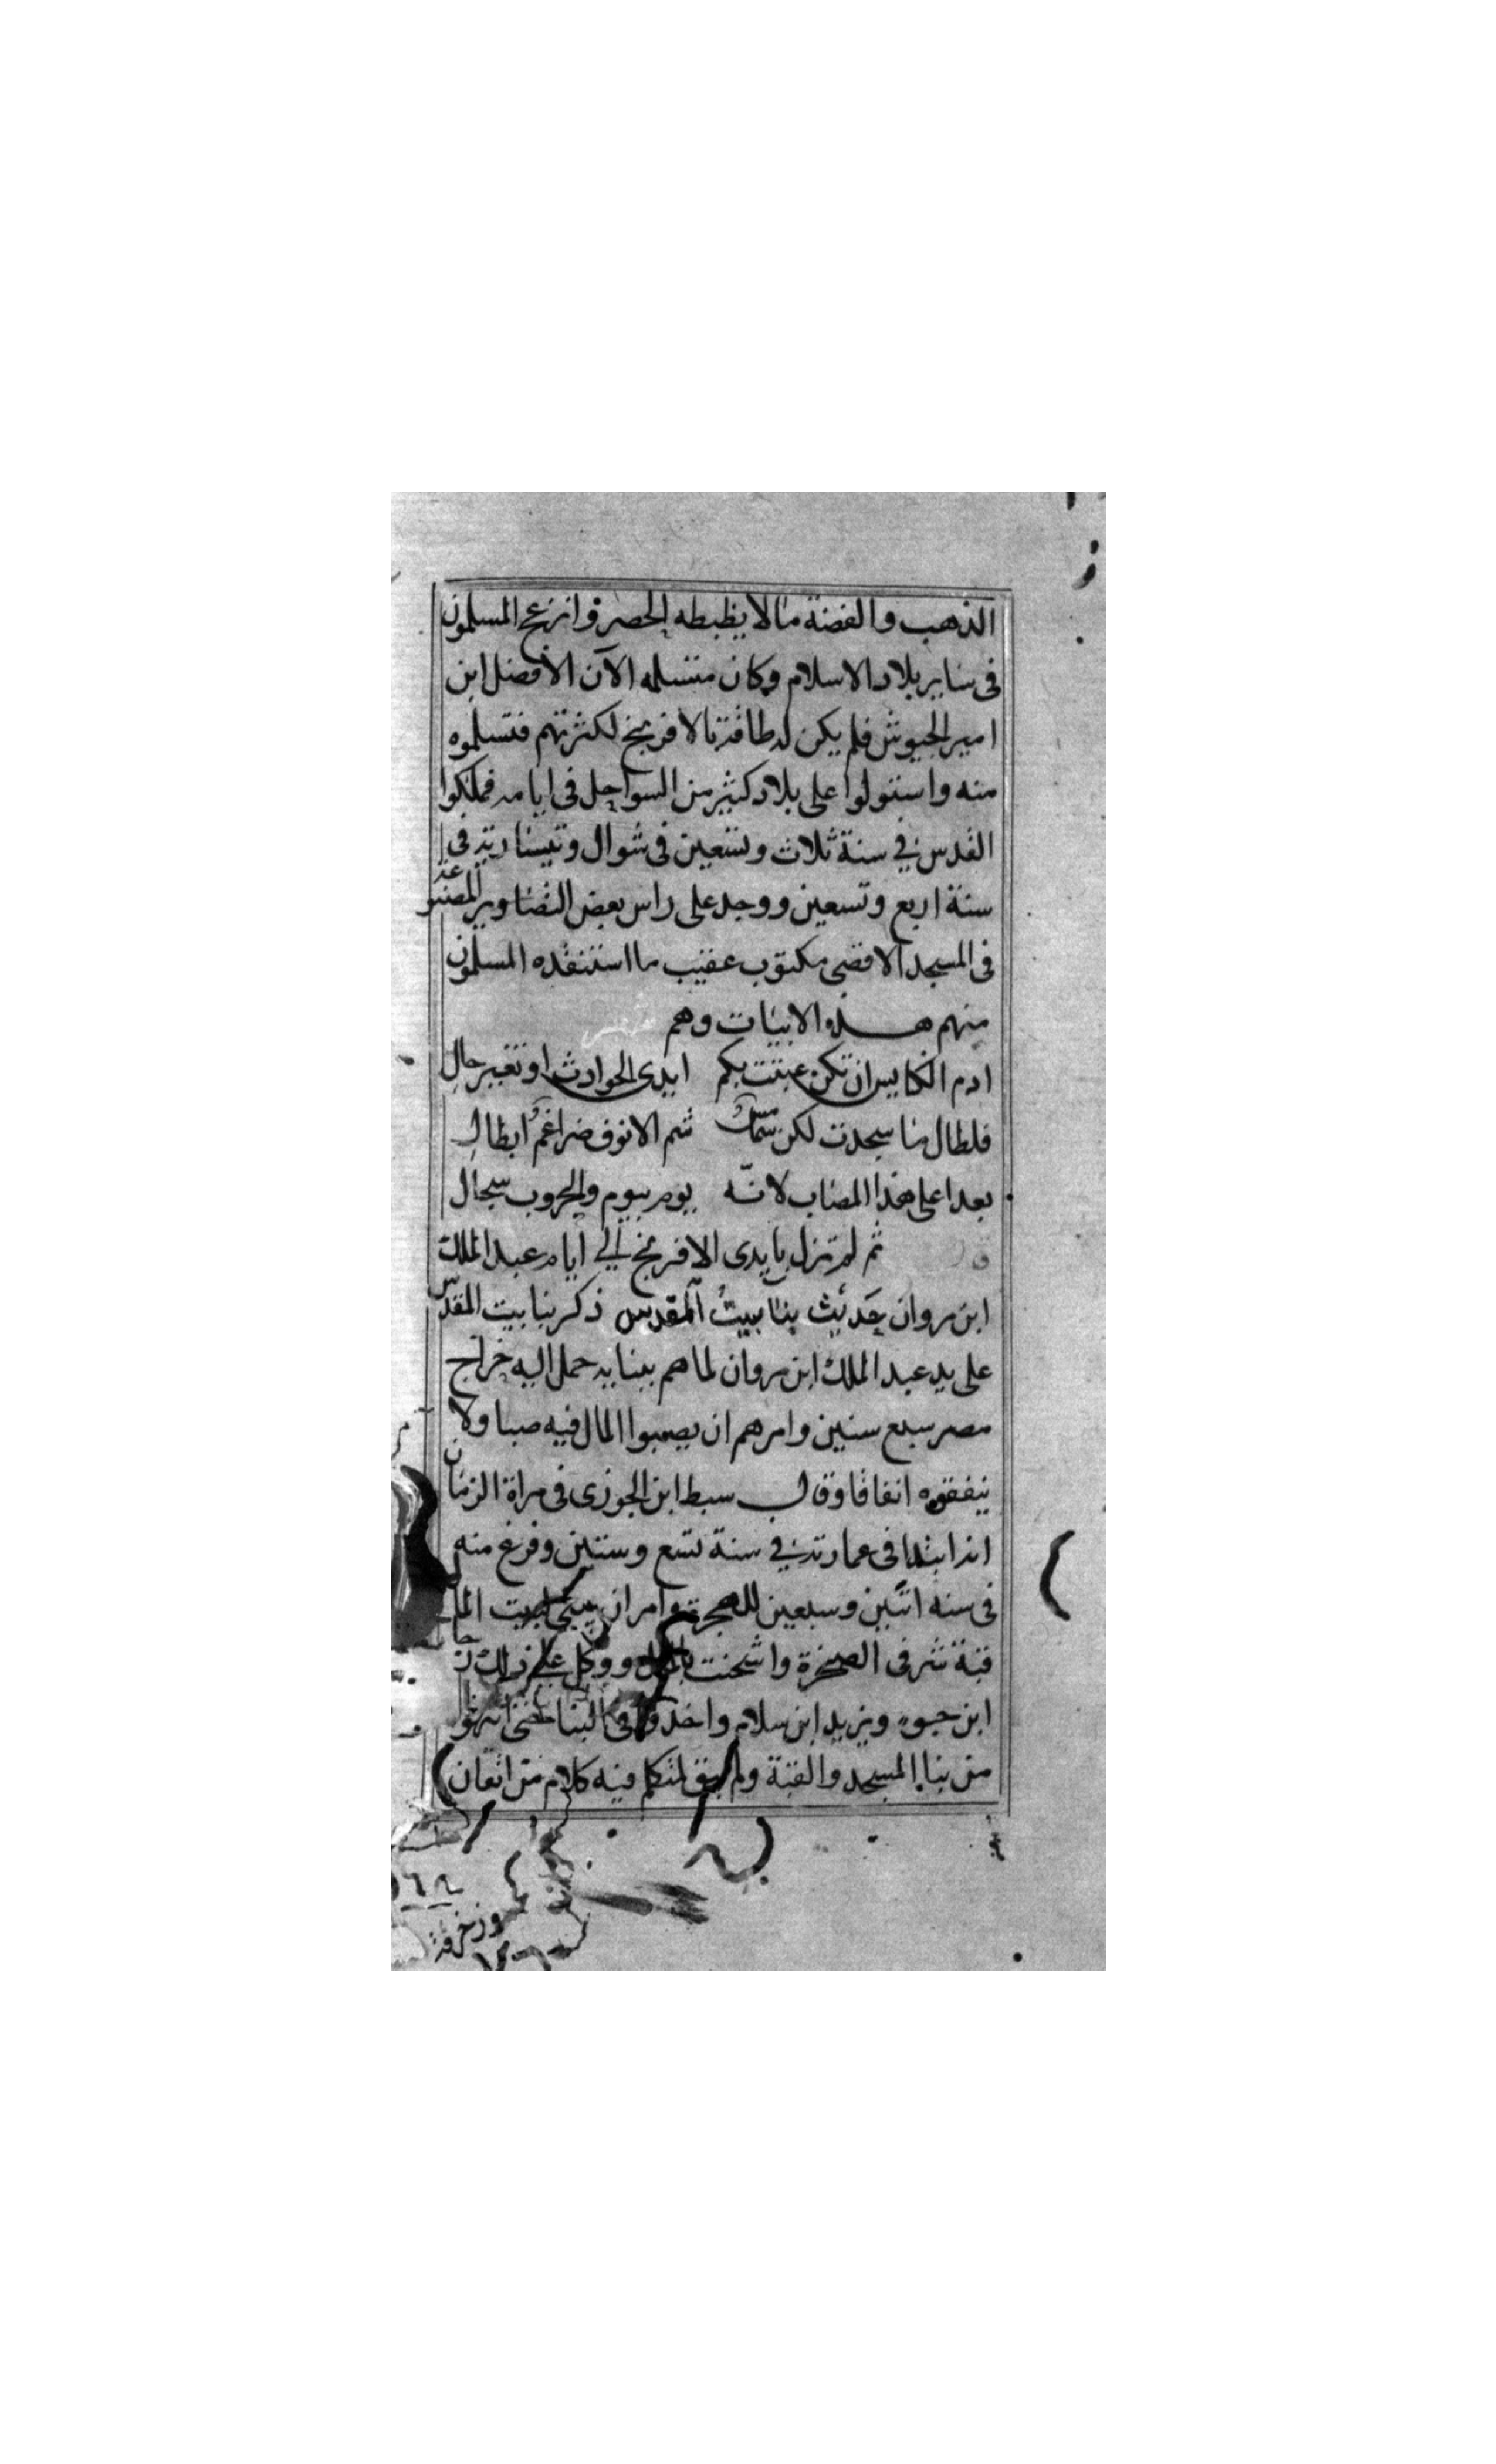 الذهب والفضة ما لا يظبطه الحصر وانزعج المسلمون
في ساير بلاد الاسلام وكان متسلمه الآن الأفضل ابن
امير الجيوش فلم يكن له طاقة بالافرنج لكثرتهم فتسلموه
منه واستولوا على بلاد كثير من السواحل في ايامه فملكوا
القدس في سنة ثلاث وتسعين في شوال وقيسارية في
سنة اربع وتسعين ووجد على راس بعض التصاوير
في المسجد الاقصى مكتوب عقيب ما استنقذه المسلمون
منهم هذه الابيات وهم
ادم الكنايس ان تكن عبثت بكم ايدي الحوادث او تغير حال
فلطال ما سجدت لكن شم الانوف ضراغم ابطال
بعدا على هذا المصاب لانه يوم بيوم والحروب سجال
ثم لم تزل بايدي الافرنج الي ايام عبد الملك
ابن مروان حديث بنا بيت المقدس ذكر بنا بيت المقدس
على يد عبد الملك ابن مروان لما هم ببنايه حمل اليه خراج
مصر سبع سنين وامرهم ان يصبوا المال فيه صبا ولا
ينفقوه انفاقا وقال سبط ابن الجوزي في مراة الزمان
انه ابتدا في عمارته في سنة تسع وستين وفرغ منه
في سنه اثنين وسبعين للهجرة وامر ان يبني بيت الما
قبة شرقي الصخرة واشحنت ووكل علي ذلك
ابن حيوه ويزيد ابن سلام واخذوا في البنا
من بنا المسجد والقبة ولم يبق لمتكلم فيه كلام من اتقان
وزخرفة